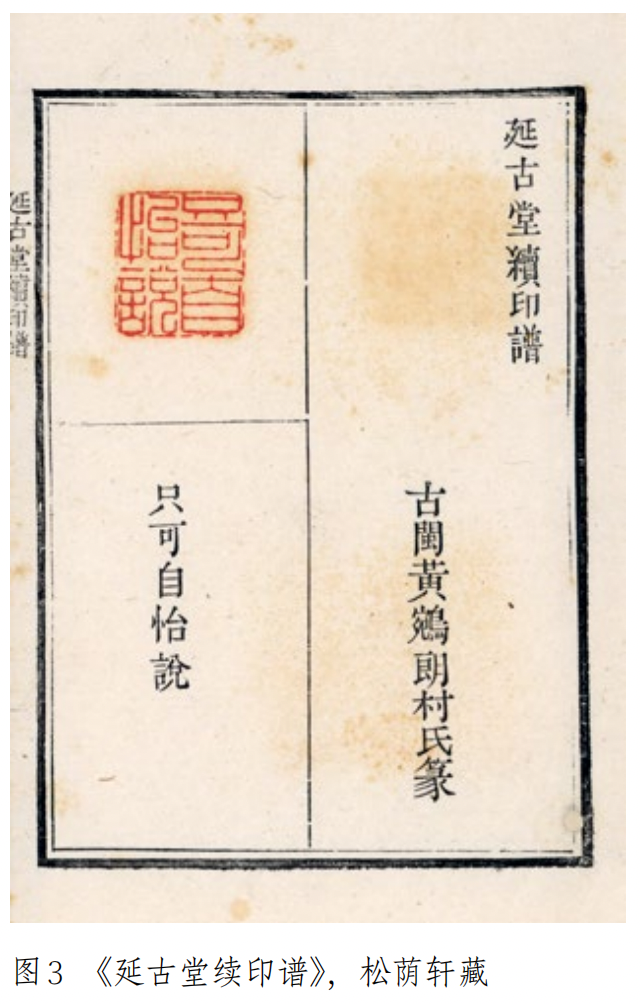 延古堂續印譜
古閩黃鵷朗村氏篆
只可自怡說
只可自怡說
延古堂續印譜
图3 《延古堂续印谱》，松荫轩藏